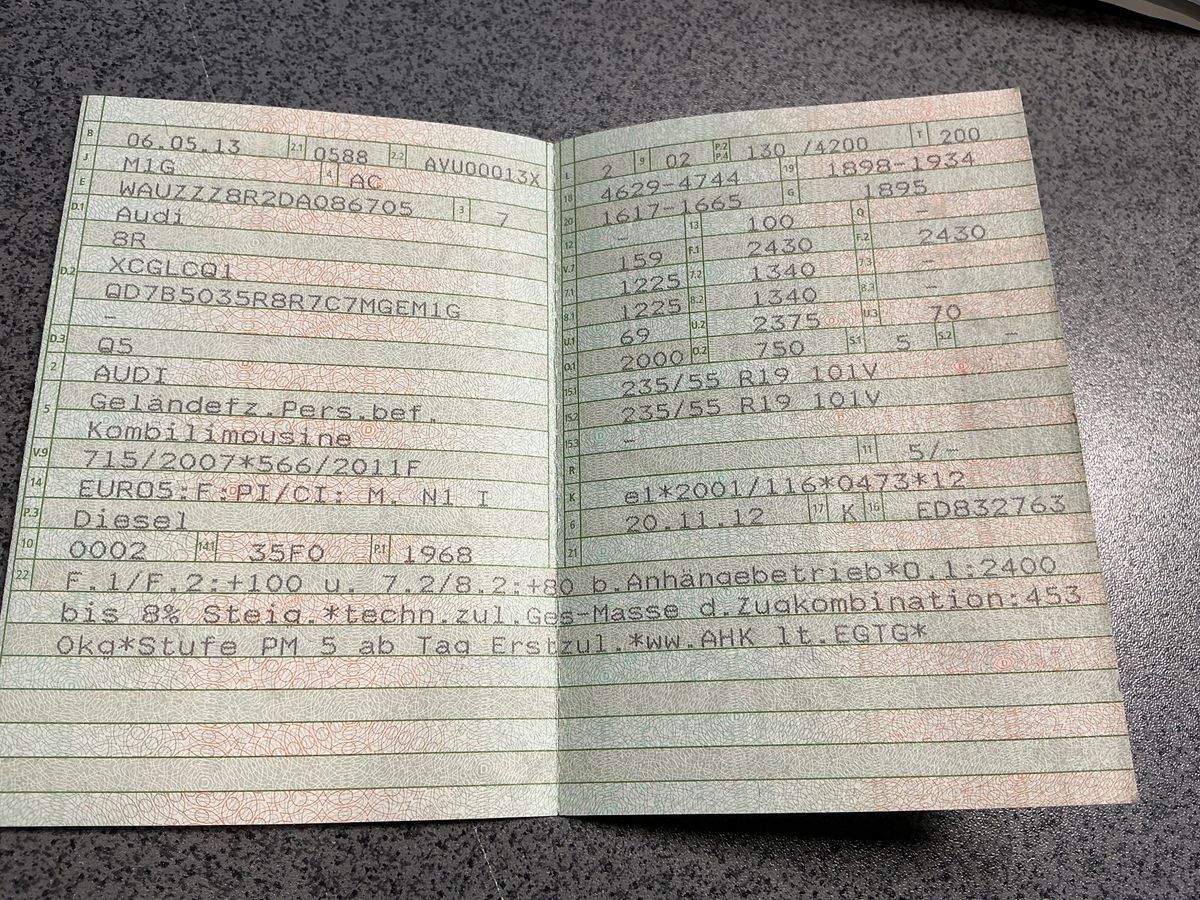 B 06.05.13 2.1 0588 2.2 AVU00013X
J M1G 4 AC
E WAUZZZ8R2DA086705 3 7
D.1 Audi
8R
D.2 XCGLCQ1
QD7B5035R8R7C7MGEM1G
–
D.3 Q5
2 AUDI
5 Geländefz.Pers.bef.
Kombilimousine
V.9 715/2007*566/2011F
14 EURO5;F;PI/CI; M, N1 I
P.3 Diesel
10 0002 14.1 35F0 P.1 1968
L 2 9 02 P.2 P.4 130 /4200 T 200
18 4629-4744 19 1898-1934
20 1617-1665 G 1895
12 – 13 100 Q –
V.7 159 F.1 2430 F.2 2430
7.1 1225 7.2 1340 7.3 –
8.1 1225 8.2 1340 8.3 –
U.1 69 U.2 2375 U.3 70
O.1 2000 O.2 750 S.1 5 S.2 –
15.1 235/55 R19 101V
15.2 235/55 R19 101V
15.3 –
R 11 5/–
K e1*2001/116*0473*12
6 20.11.12 17 K 16 ED832763
21
22 F.1/F.2:+100 u. 7.2/8.2:+80 b.Anhängebetrieb*O.1:2400
bis 8% Steig.*techn.zul.Ges-Masse d.Zugkombination:453
0kg*Stufe PM 5 ab Tag Erstzul.*ww.AHK lt.EGTG*